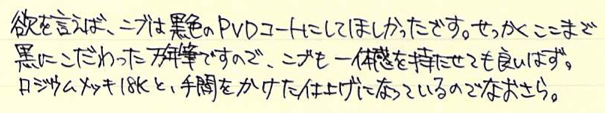 欲を言えば、ニブは黒色のPVDコートにしてほしかったです。せっかくここまで
黒にこだわった万年筆ですので、ニブも一体感を持たせても良いはず。
ロジウムメッキ18Kと、手間をかけた仕上げになっているのでなおさら。